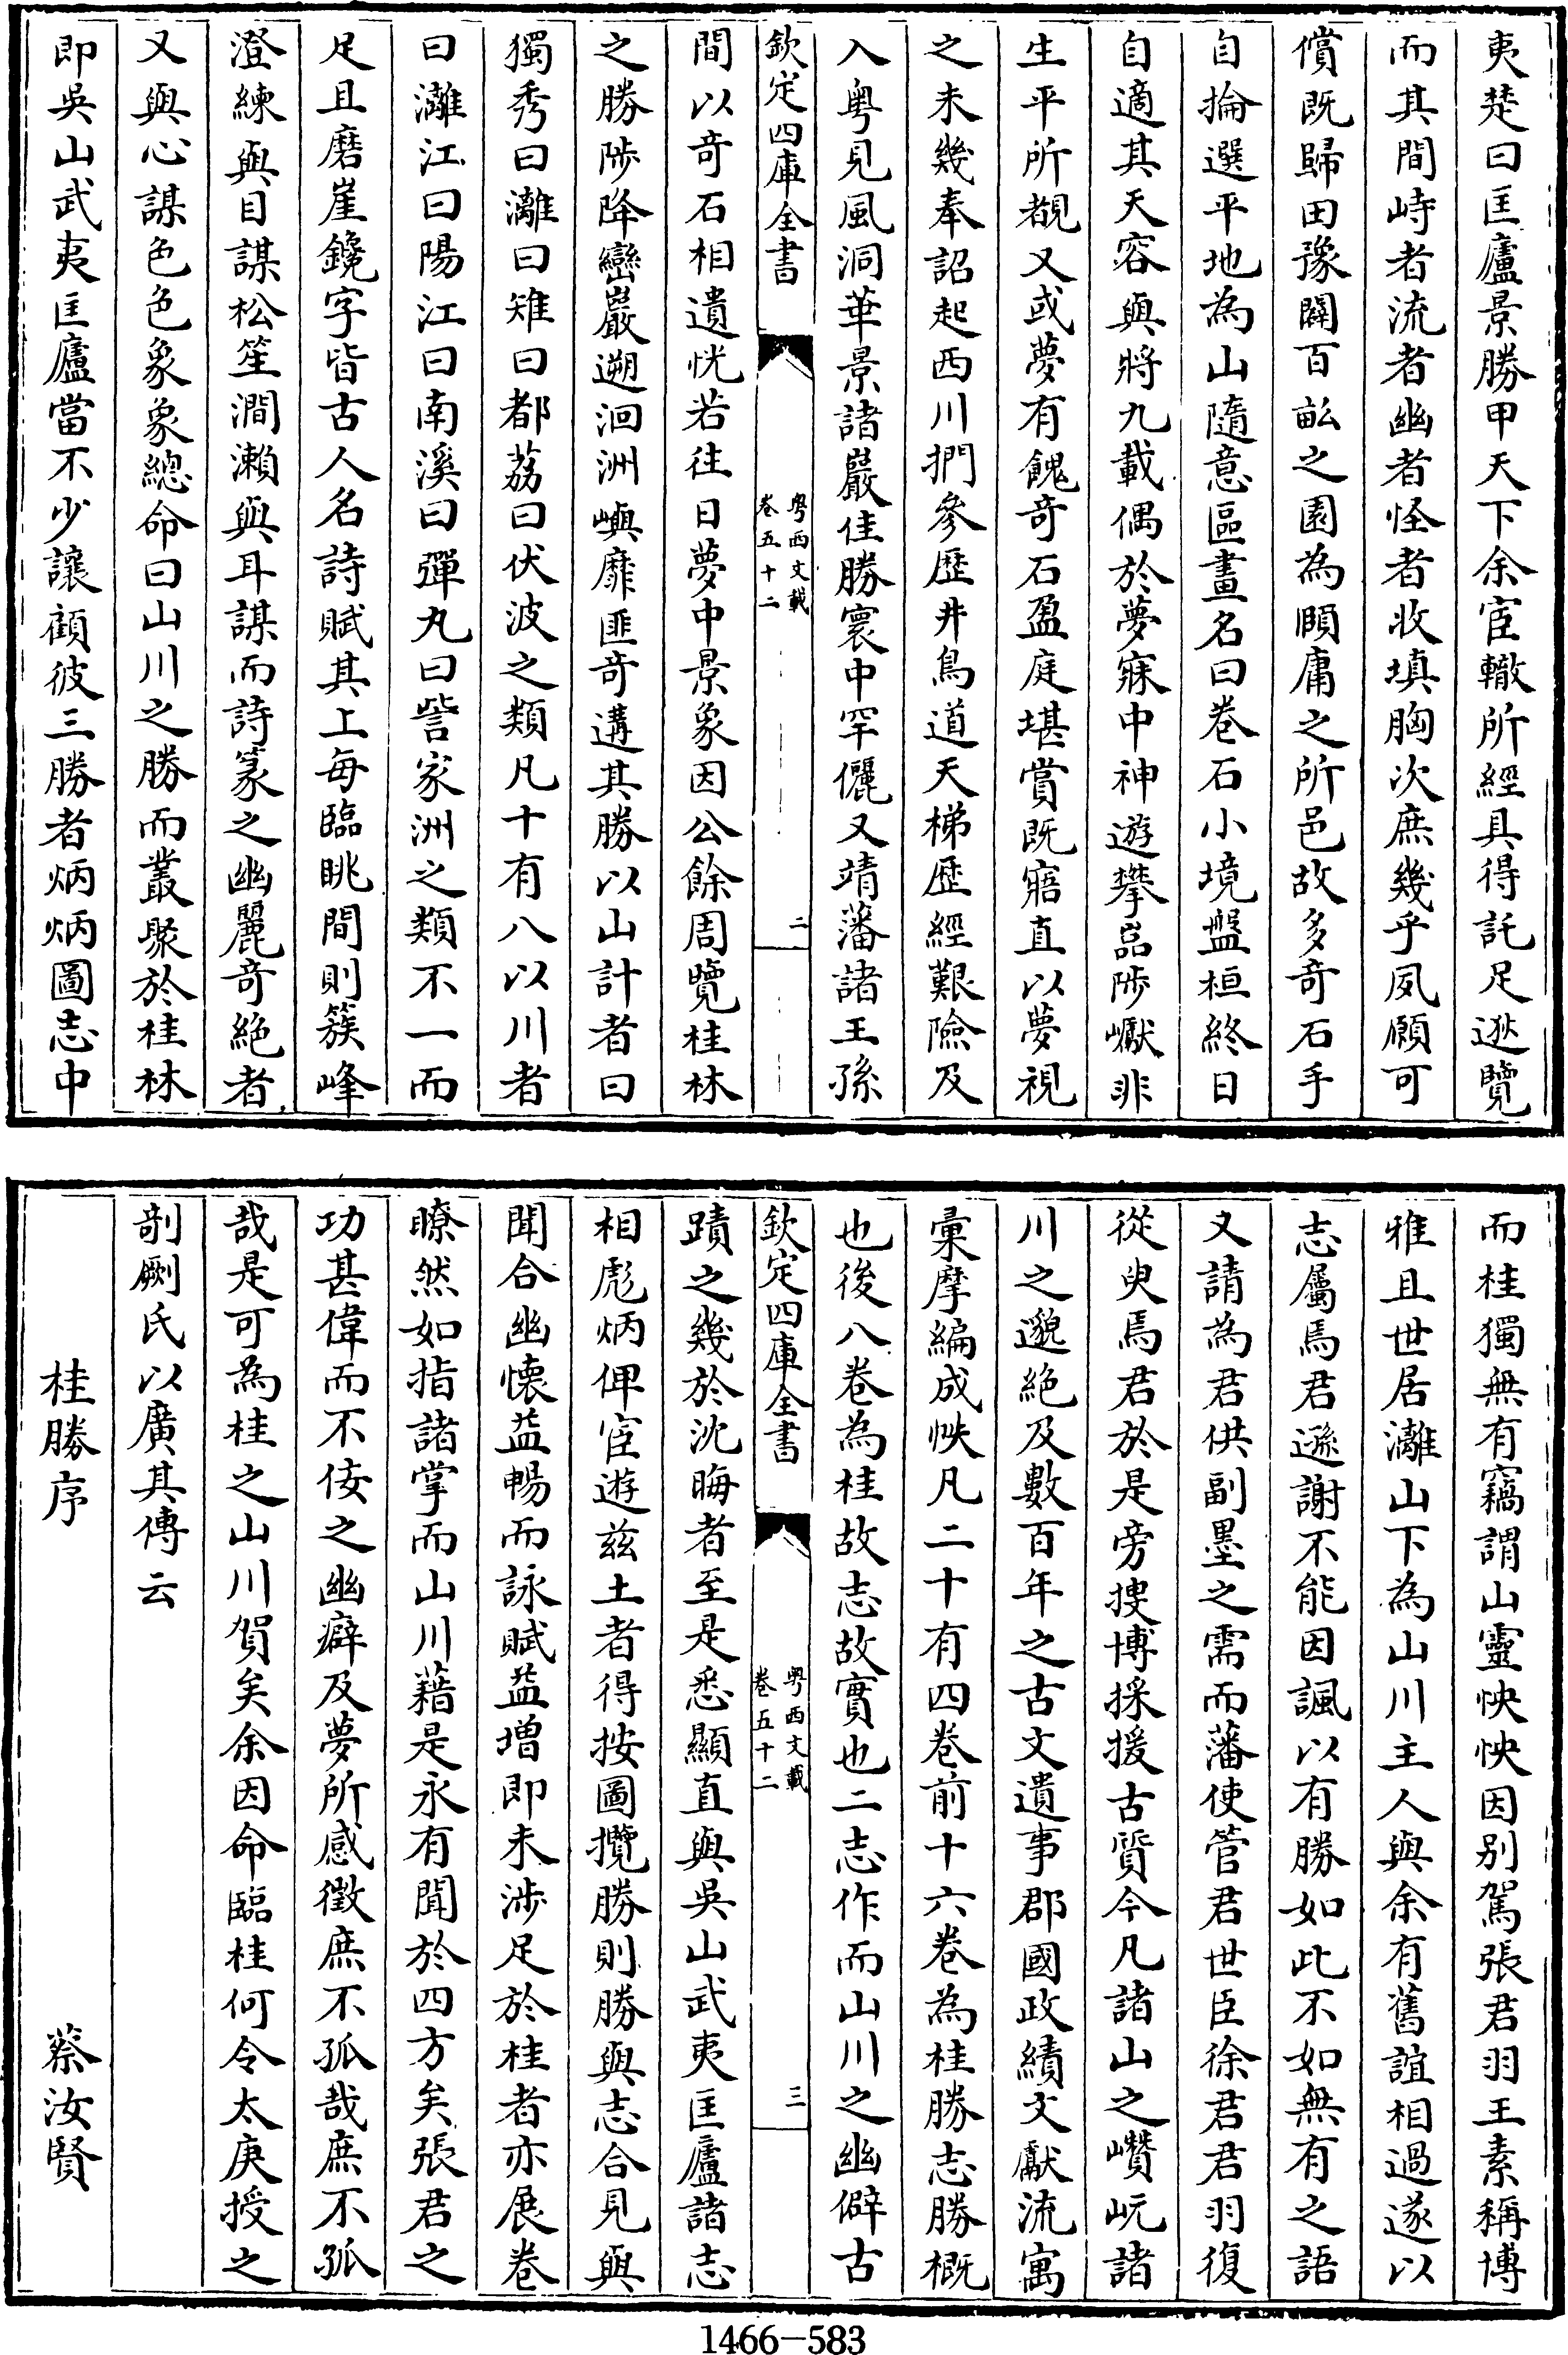 夷楚曰匡廬景勝甲天下余宦轍所經具得託足遊覽
而其間峙者流者幽者怪者收填胸次庶幾乎夙願可
償既歸田豫闢百畝之園為頤庸之所邑故多奇石手
自掄選平地為山隨意區畫名曰卷石小境盤桓終日
自適其天容與將九載偶於夢寐中神遊攀嵒陟巘非
生平所覩又或夢有餽奇石盈庭堪賞既寤直以夢視
之未幾奉詔起西川捫參歷井鳥道天梯歷經艱險及
入粤見風洞華景諸巖佳勝寰中罕儷又靖藩諸王孫
欽定四庫全書
粤西文載
卷五十二
二
間以奇石相遺恍若往日夢中景象因公餘周覽桂林
之勝陟降巒巖遡洄洲嶼靡匪奇遘其勝以山計者曰
獨秀曰灕曰雉曰都荔曰伏波之類凡十有八以川者
曰灕江曰陽江曰南溪曰彈丸曰訾家洲之類不一而
足且磨崖鑱字皆古人名詩賦其上每臨眺間則簇峰
澄練與目謀松笙澗瀨與耳謀而詩篆之幽麗奇絕者
又與心謀色色象象總命曰山川之勝而叢聚於桂林
即吳山武夷匡廬當不少讓顧彼三勝者炳炳圖志中
而桂獨無有竊謂山靈怏怏因别駕張君羽王素稱博
雅且世居灕山下為山川主人與余有舊誼相過遂以
志屬焉君遜謝不能因諷以有勝如此不如無有之語
又請為君供副墨之需而藩使管君世臣徐君君羽復
從臾焉君於是旁搜博採援古質今凡諸山之巑岏諸
川之邈絕及數百年之古文遺事郡國政績文獻流寓
彚摩編成帙凡二十有四卷前十六卷為桂勝志勝概
也後八卷為桂故志故實也二志作而山川之幽僻古
欽定四庫全書
粤西文載
卷五十二
三
蹟之幾於沈晦者至是悉顯直與吳山武夷匡廬諸志
相彪炳俾宦遊兹土者得按圖攬勝則勝與志合見與
聞合幽懷益暢而詠賦益增即未涉足於桂者亦展卷
瞭然如指諸掌而山川藉是永有聞於四方矣張君之
功甚偉而不佞之幽癖及夢所感徵庶不孤哉庶不孤
哉是可為桂之山川賀矣余因命臨桂何令太庚授之
剞劂氏以廣其傳云
桂勝序
蔡汝賢
1466-583